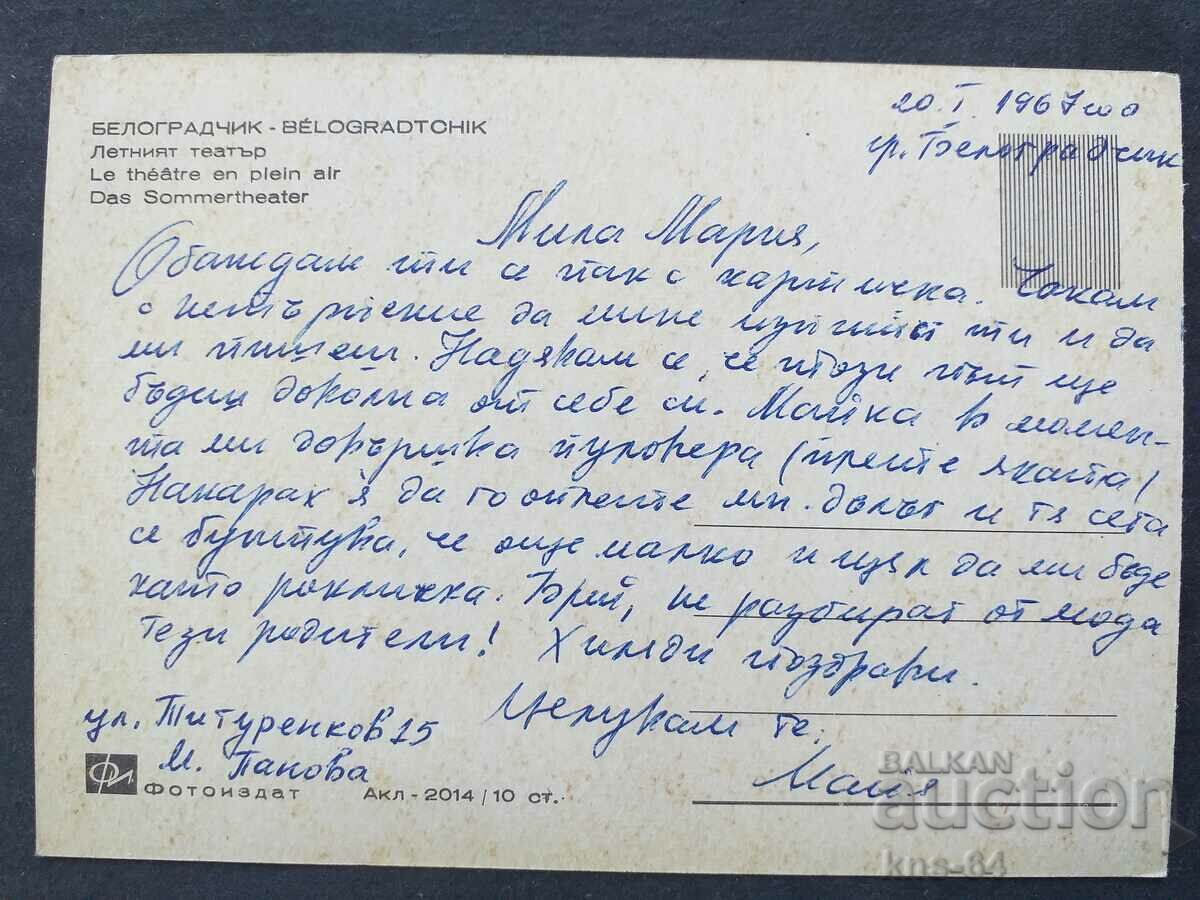 БЕЛОГРАДЧИК - BÉLOGRADTCHIK
Летният театър
Le théâtre en plein air
Das Sommertheater
20. I. 1967 год
гр. Белоградчик
Мила Мария,
Обаждам ти се пак с картичка. Чакам
с нетърпение да мине изпитът ти и да
ми пишеш. Надявам се, че този път ще
бъдеш доволна от себе си. Майка в момен-
та ми довършва пуловера (плете яката)
Накарах я да го отплете мн. дълъг и тя сега
се бунтува, че още малко и щял да ми бъде
като рокличка. Брей, не разбират от мода
тези родители! Хиляди поздрави.
Целувам те:
Майя
ул. Титуренков 25
М. Панова
Фотоиздат Акл - 2014 / 10 ст.
BALKAN
auction
kns-64